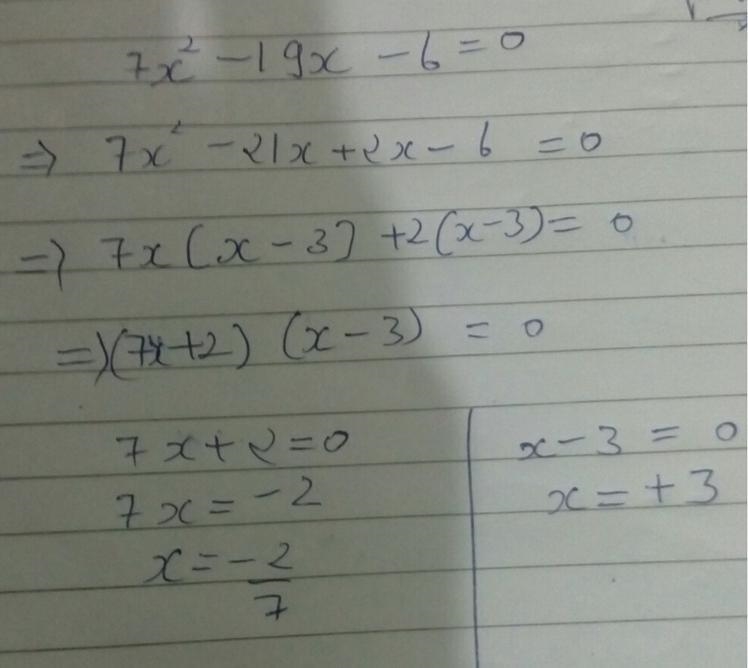 7x² - 19x - 6 = 0
⇒ 7x² - 21x + 2x - 6 = 0
⇒ 7x(x - 3) + 2(x - 3) = 0
⇒ (7x + 2) (x - 3) = 0
7x + 2 = 0
7x = -2
x = -2/7
x - 3 = 0
x = +3